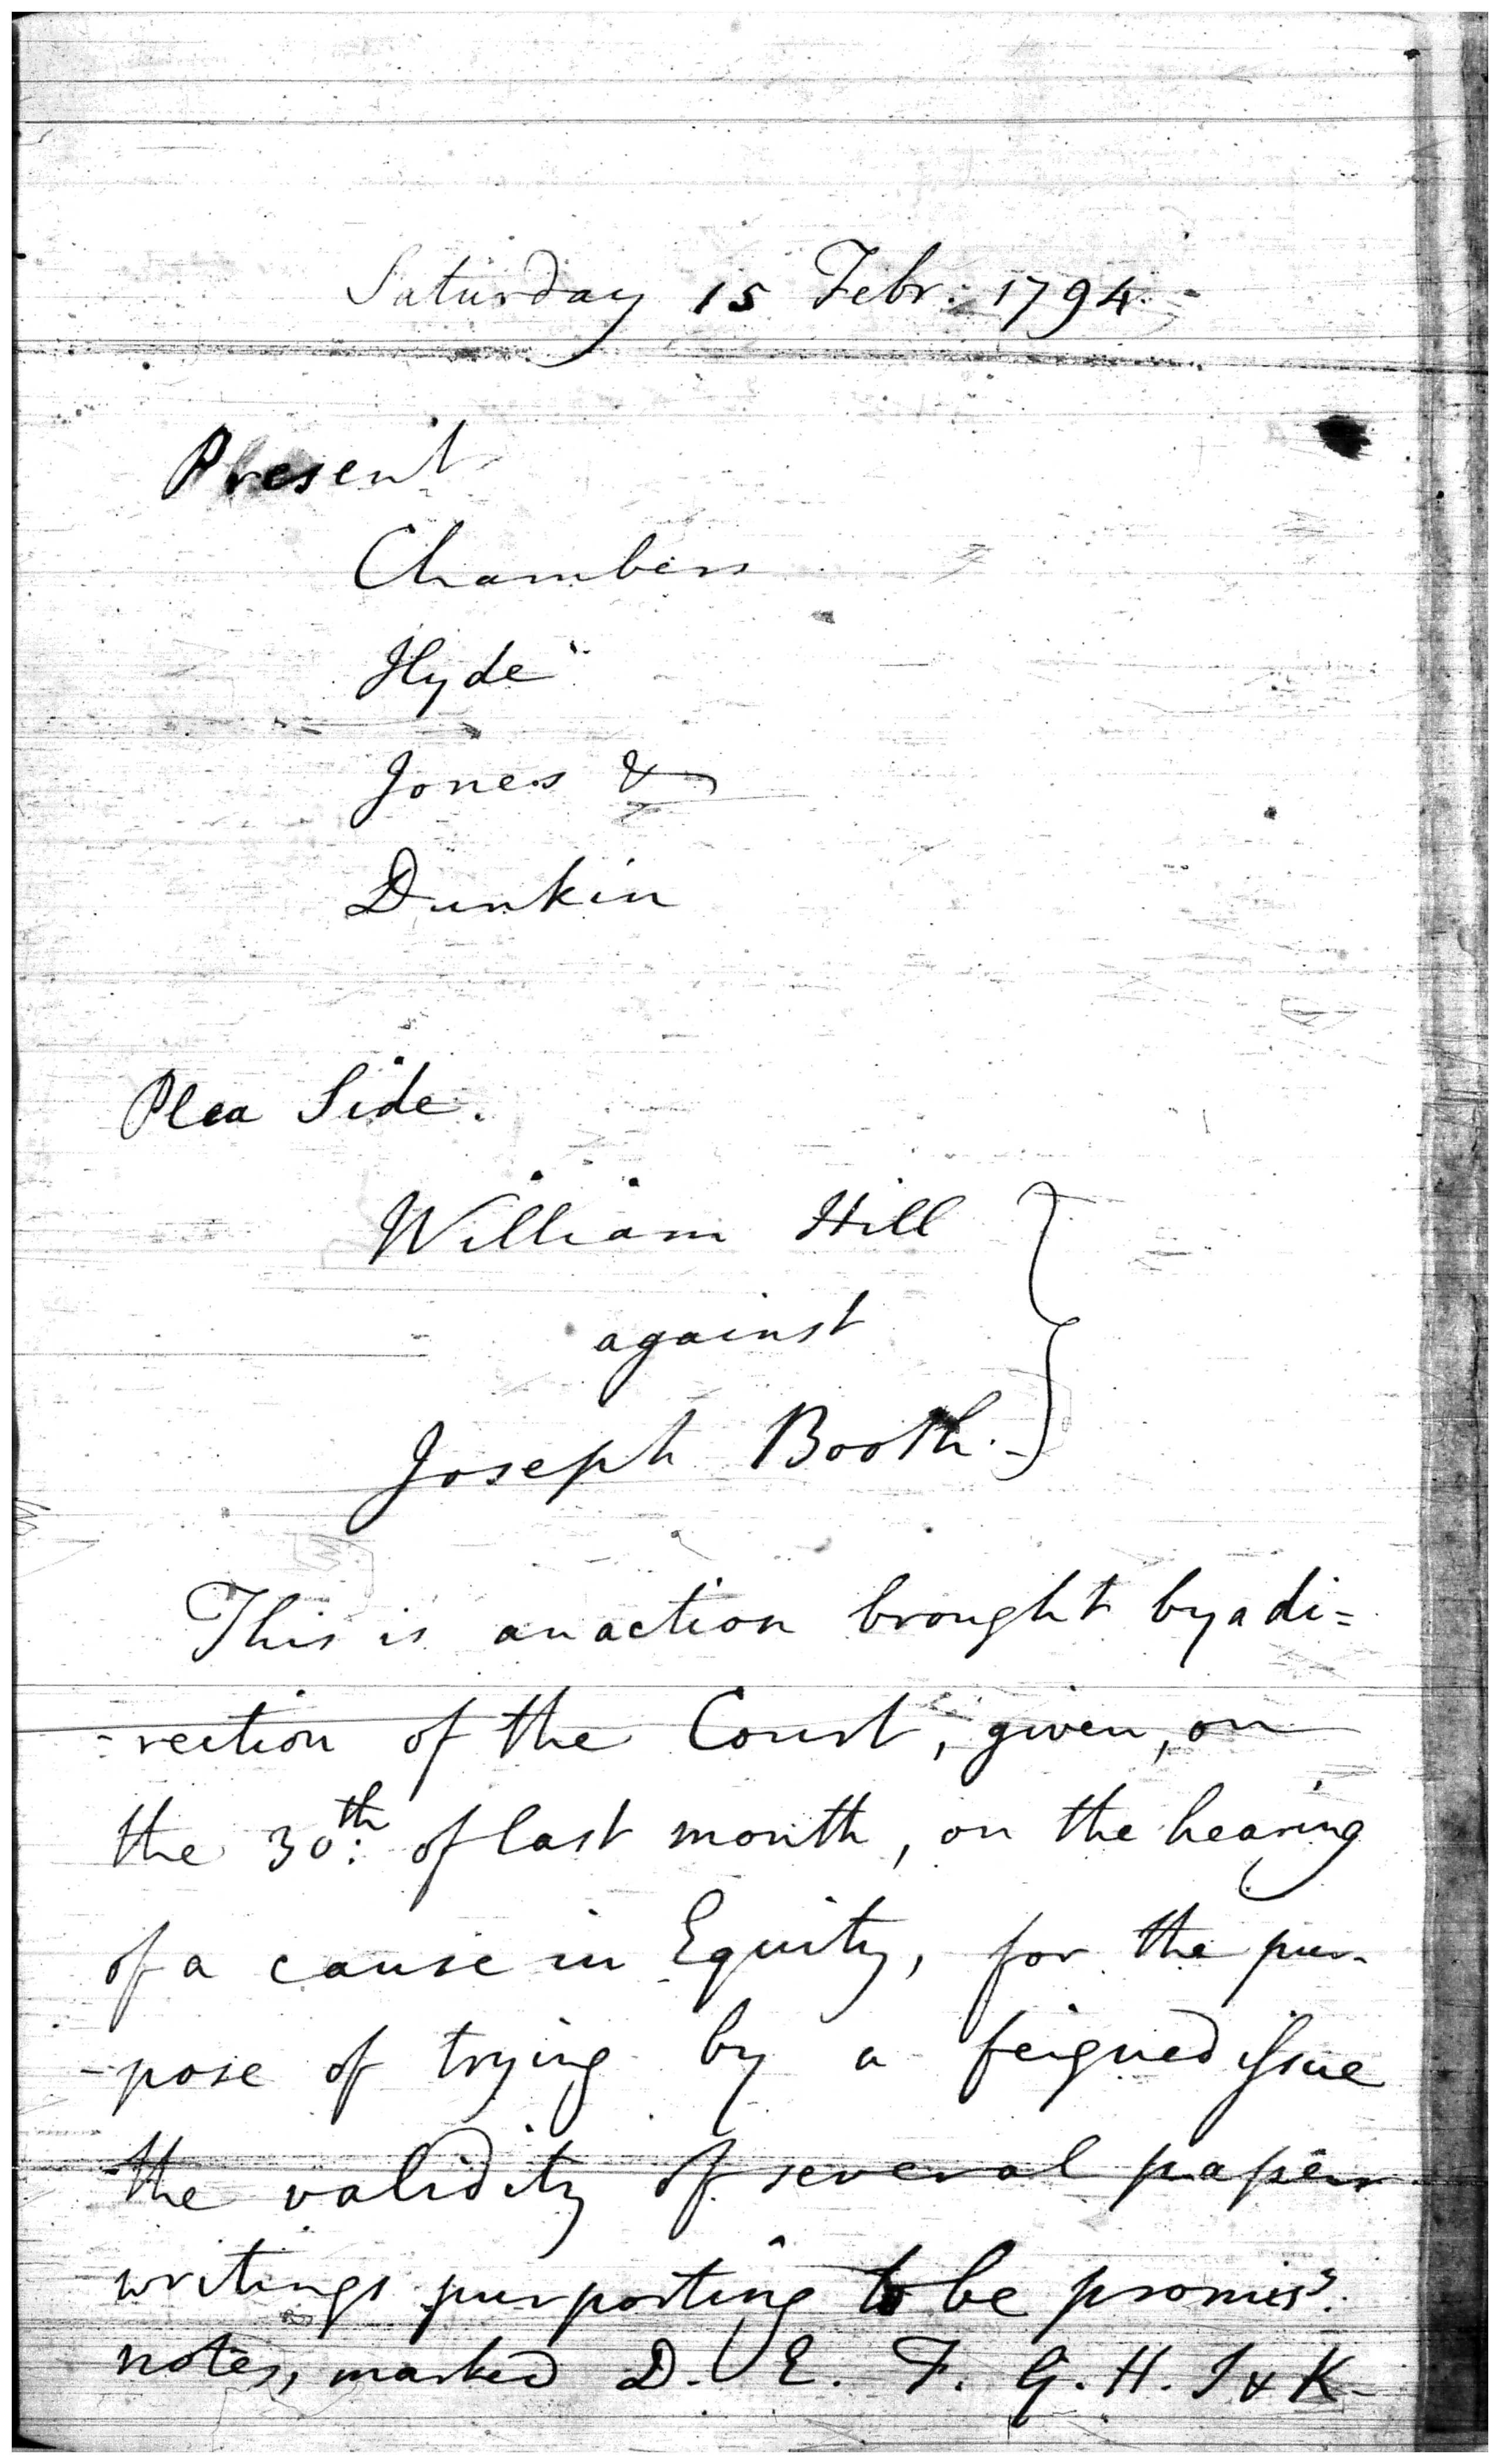 Saturday 15 Febr: 1794.
Present
Chambers
Hyde
Jones &
Dunkin
Plea Side.
William Hill
against
Joseph Booth.
This is an action brought by a di=
-rection of the Court, given, on
the 30th: of last month, on the hearing
of a cause in Equity, for the pur-
-pose of trying by a feigned issue
the validity of several paper
writings purporting to be promiss:
notes, marked D. E. F. G. H. I & K-